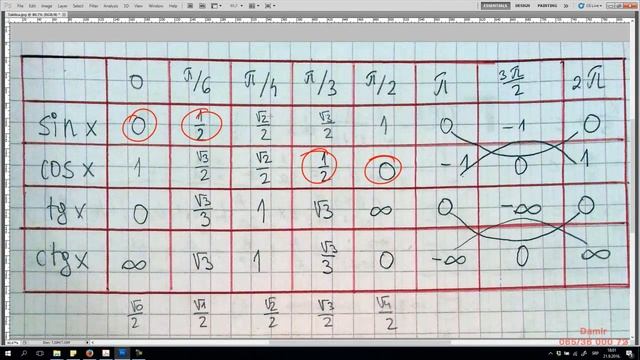 File Edit Image Layer Select Filter Analysis 3D View Window Help
ESSENTIALS DESIGN PAINTING
CS Live
0 π/6 π/4 π/3 π/2 π 3π/2 2π
sin x 0 1/2 √2/2 √3/2 1 0 -1 0
cos x 1 √3/2 √2/2 1/2 0 -1 0 1
tg x 0 √3/3 1 √3 ∞ 0 -∞ 0
ctg x ∞ √3 1 √3/3 0 -∞ 0 ∞
√0/2 √1/2 √2/2 √3/2 √4/2
Damir
065/36 000 72